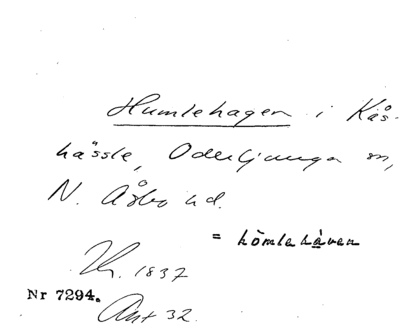 Humlehagen i Kås-
hässle, Oderljunga sn,
N. Åsbo hd.
= hömlehåven
1837
Nr 7294.
Ant 32.